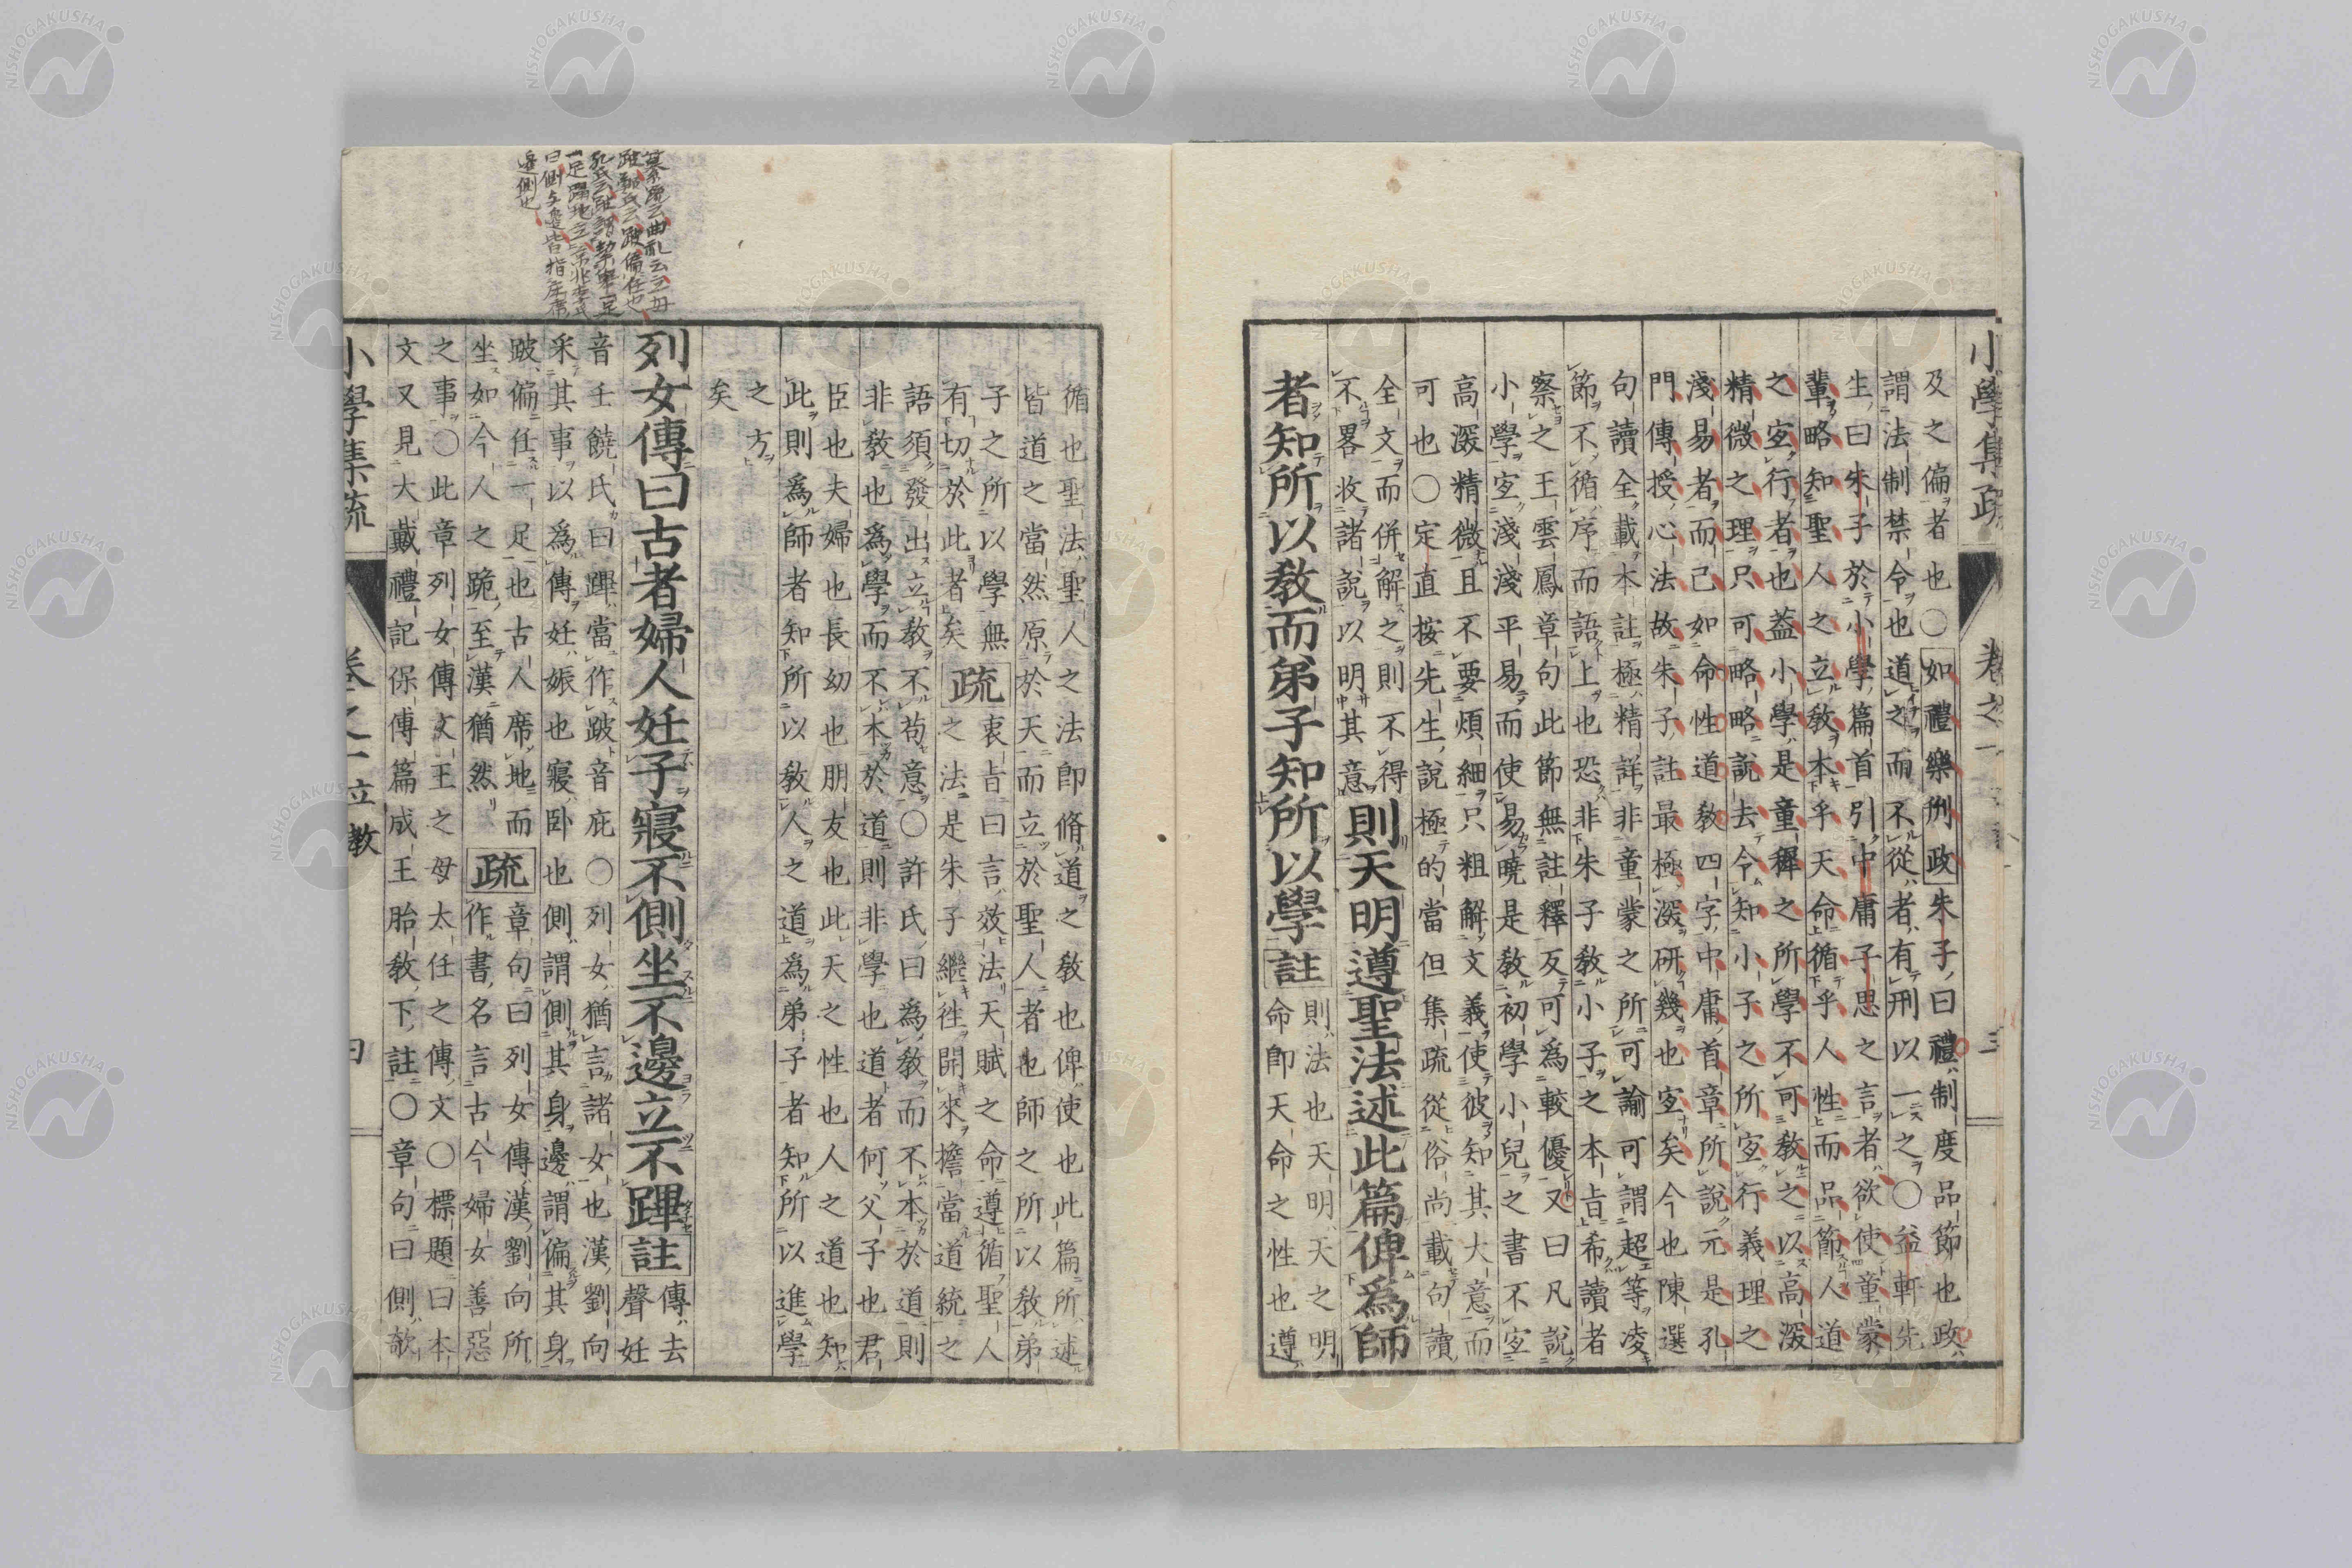 小學集疏 卷之一 三
及之偏者也〇如禮樂刑政朱子曰禮制度品節也政
謂法制禁令也道之而不從者有刑以一之〇益軒先
生曰朱子於小學篇首引中庸子思之言者欲使童蒙
輩略知聖人之立教本乎天命循乎人性而品節人道
之宐行者也蓋小學是童穉之所學不可教之以高深
精微之理只可略略說去令知小子之所宐行義理之
淺易者而已如命性道教四字中庸首章所說元是孔
門傳授心法故朱子註最極深研幾也宐矣今也陳選
句讀全載本註極精詳非童蒙之所可諭可謂超等凌
節不循序而語上也恐非朱子教小子之本旨希讀者
察之王雲鳳章句此節無註釋反可為較優又曰凡說
小學宐淺淺平易而使易曉是教初學小兒之書不宐
高深精微且不要煩細只粗解文義使彼知其大意而
可也〇定直按先生說極的當但集疏從俗尚載句讀
全文而併解之則不得
不畧收諸說以明其意
則天明遵聖法述此篇俾爲師
者知所以教而弟子知所以學註
則法也天明天之明
命即天命之性也遵
循也聖法聖人之法即脩道之教也俾使也此篇所述
皆道之當然原於天而立於聖人者也師之所以教弟
子之所以學無
有切於此者矣
疏
衷旨曰言效法天賦之命遵循聖人
之法是朱子繼徃開來擔當道統之
語須發出立教不苟意〇許氏曰為教而不本於道則
非教也為學而不本於道則非學也道者何父子也君
臣也夫婦也長幼也朋友也此天之性也人之道也知
此則為師者知所以教人之道為弟子者知所以進學
之方
矣
列女傳曰古者婦人妊子寢不側坐不邊立不蹕註
傳去
聲妊
音壬饒氏曰蹕當作跛音庇〇列女猶言諸女也漢劉向
采其事以為傳妊娠也寢卧也側謂側其身邊謂偏其身
跛偏任一足也古人席地而
坐如今人之跪至漢猶然
疏
章句曰列女傳漢劉向所
作書名言古今婦女善惡
之事〇此章列女傳文王之母太任之傳文〇標題曰本
文又見大戴禮記保傅篇成王胎教下註〇章句曰側欹
小學集疏 卷之一 立教 四